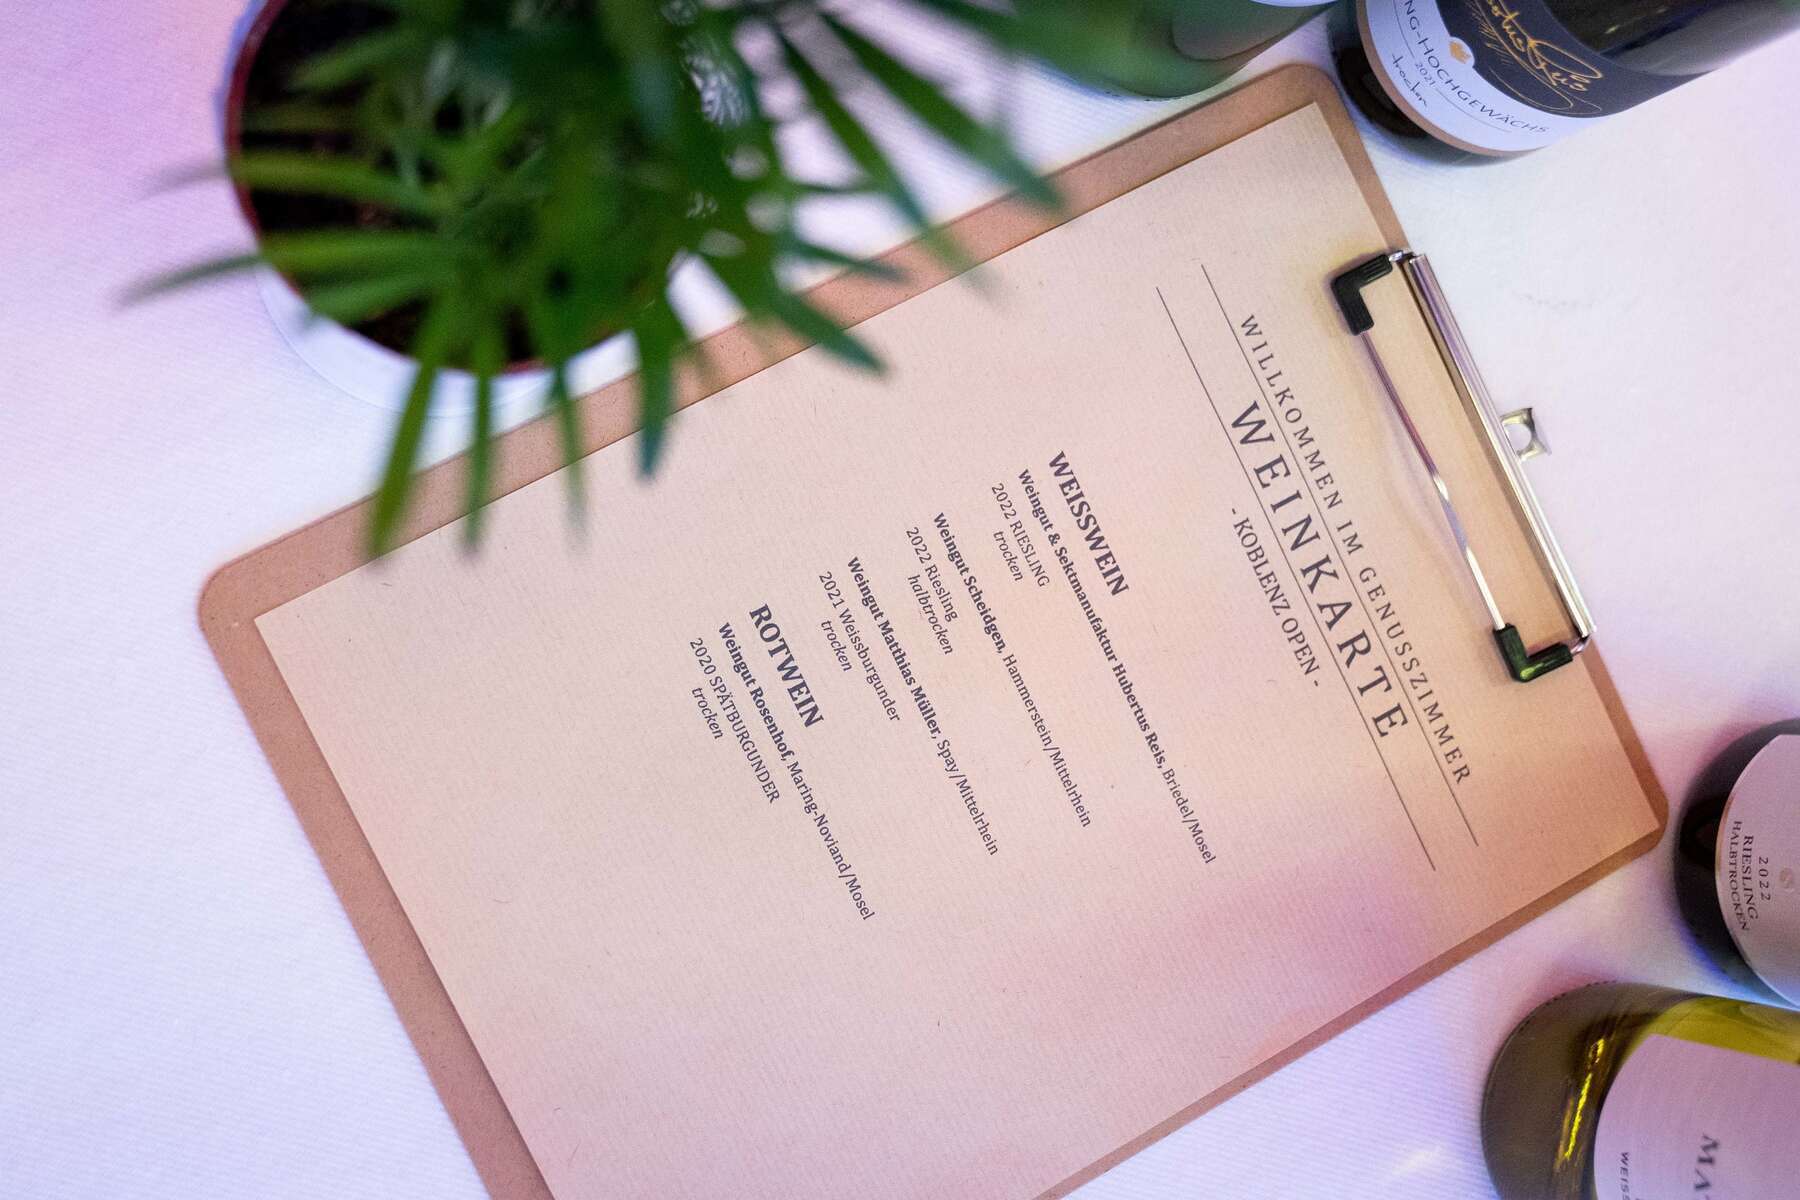 WILLKOMMEN IM GENUSSZIMMER
WEINKARTE
- KOBLENZ OPEN -
WEISSWEIN
Weingut & Sektmanufaktur Hubertus Reis, Briedel/Mosel
2022 RIESLING
trocken
Weingut Scheidgen, Hammerstein/Mittelrhein
2022 Riesling
halbtrocken
Weingut Matthias Müller, Spay/Mittelrhein
2021 Weissburgunder
trocken
ROTWEIN
Weingut Rosenhof, Maring-Noviand/Mosel
2020 SPÄTBURGUNDER
trocken
NG-HOCHGEWÄCHS
2021
trocken
2022
RIESLING
HALBTROCKEN
MA
WEIS